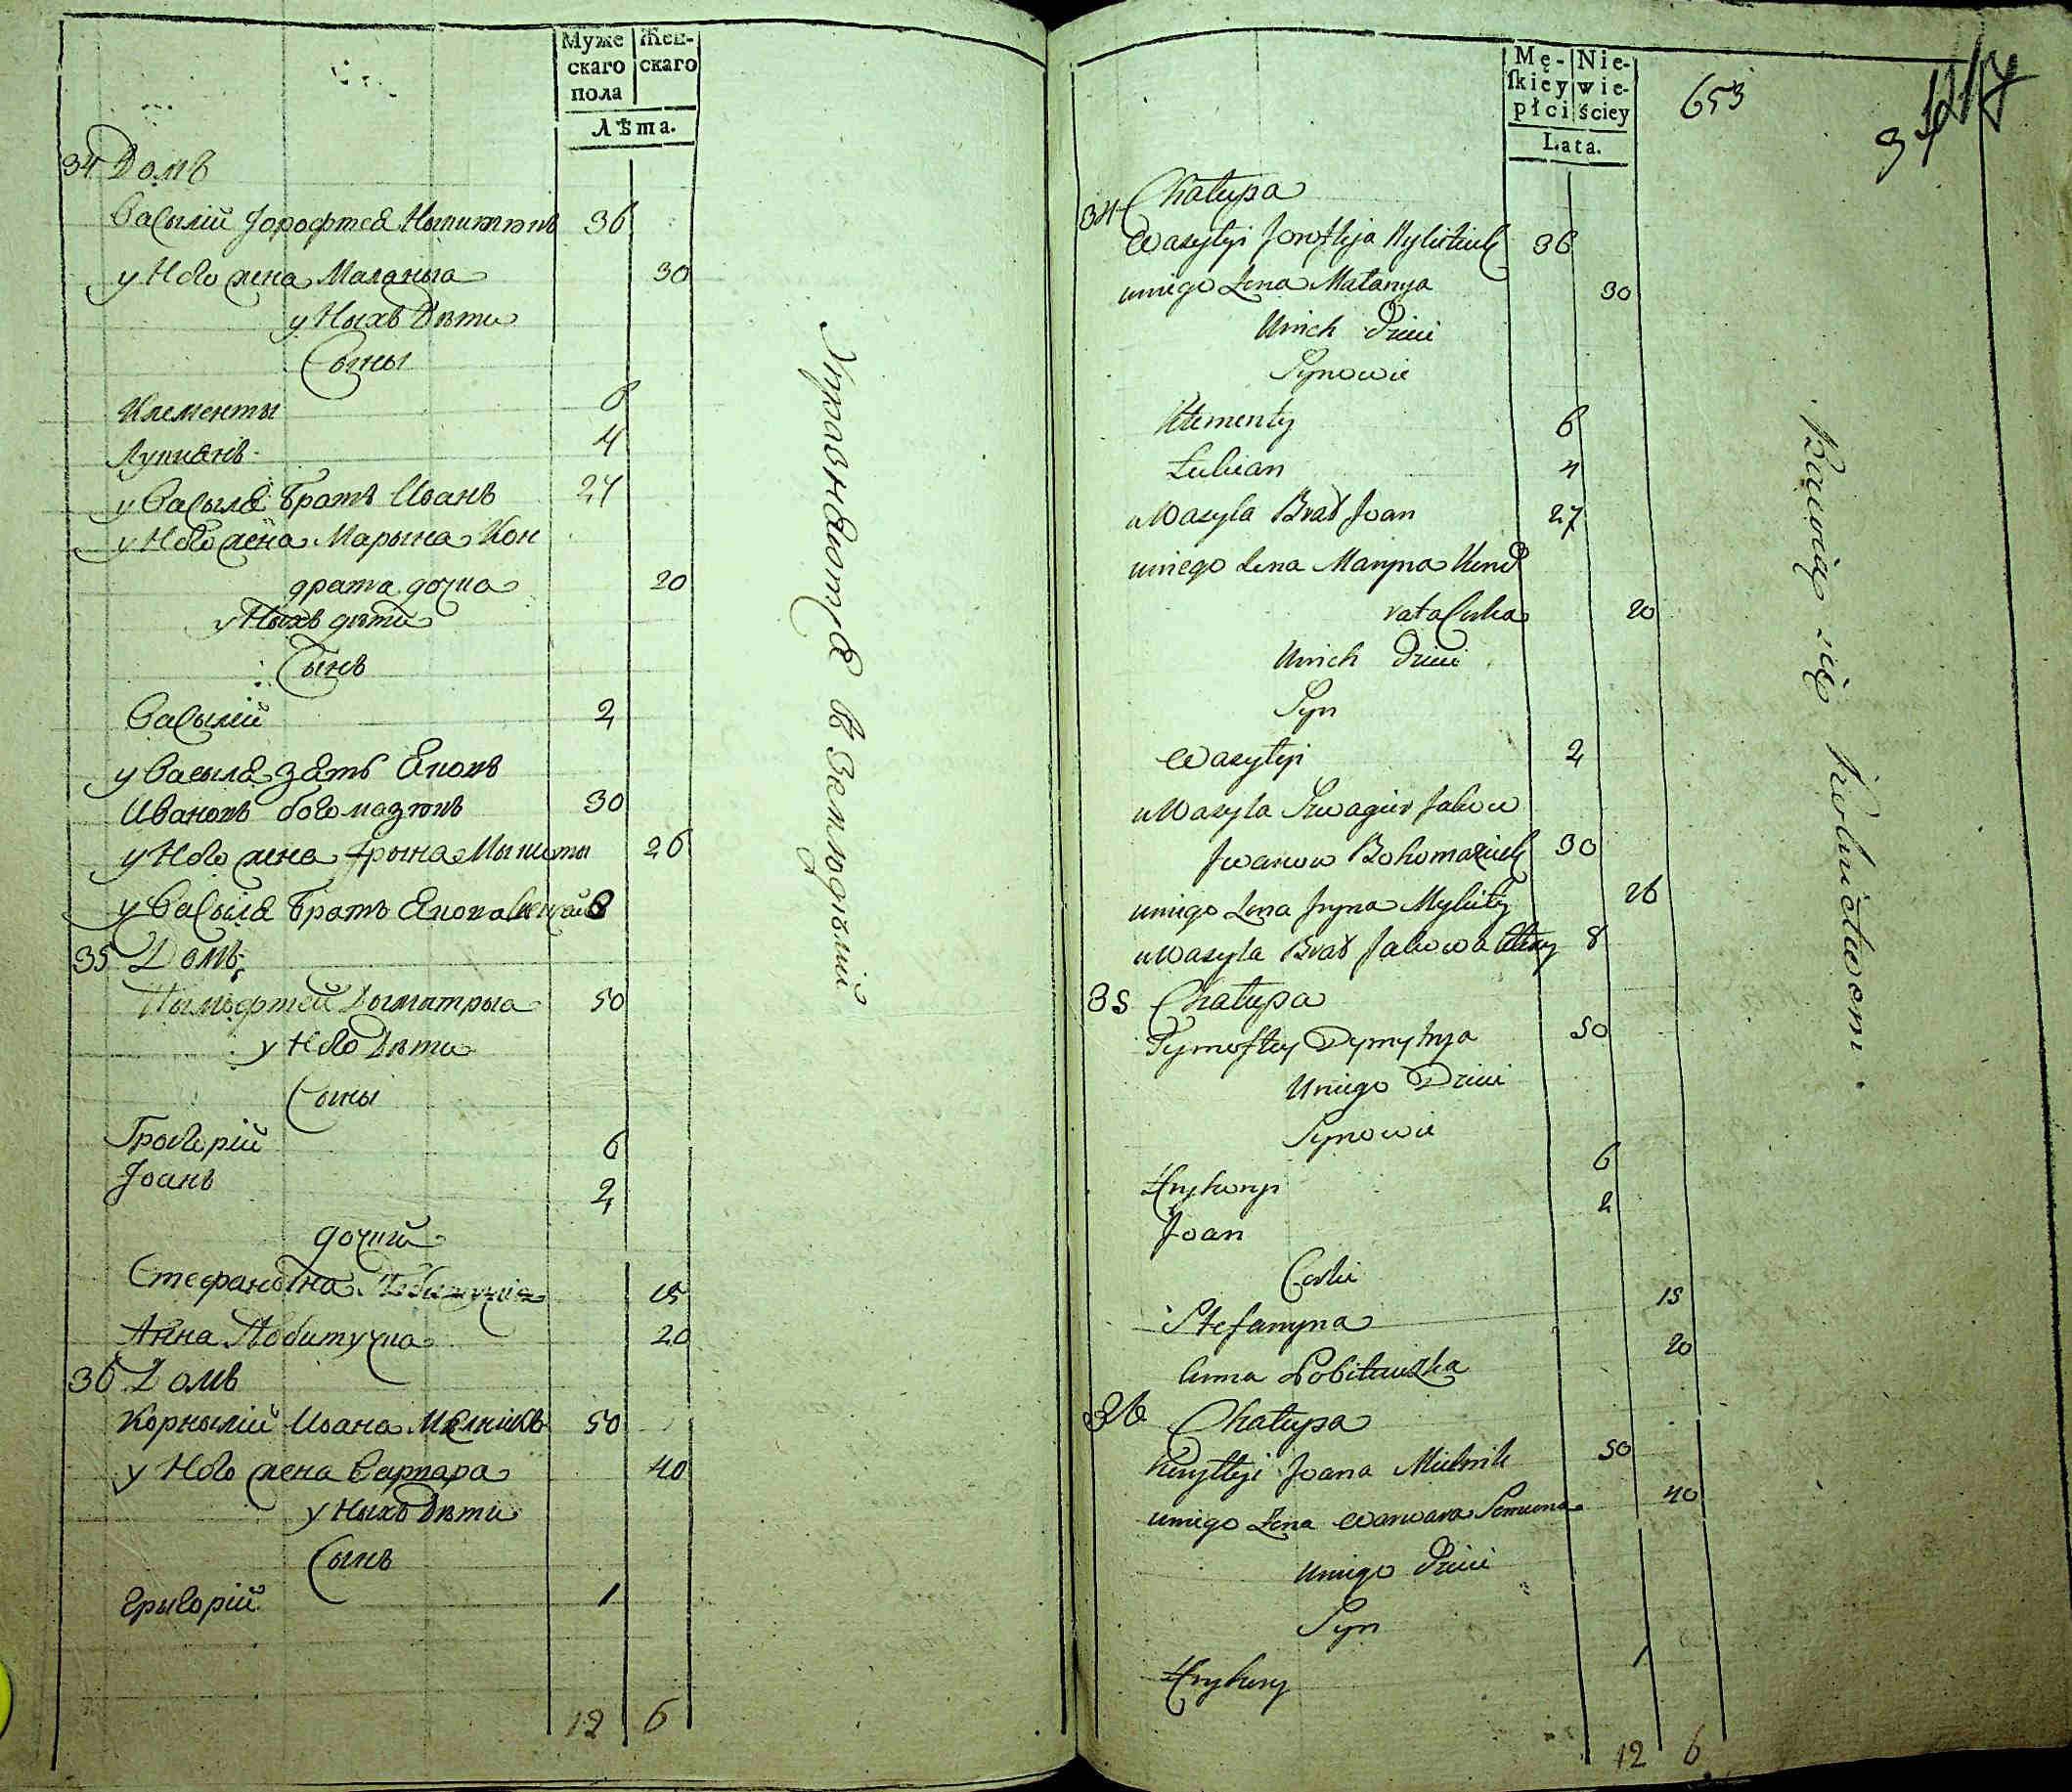 Муже Жен-
скаго скаго
пола
Лѣта.
34 Домъ
Василій Мыкитюкъ 36
у Него жена Маланыа 30
у Ныхъ Дѣти
Сыны
Клементы 6
Лукианъ 4
у Васыля братъ Иоанъ 27
у Него жена Марына Кон
драта дочка 20
у Ныхъ дѣти
Сынъ
Васылій 2
у Васыля зять Яковъ
Ивановъ богомазюкъ 30
у Него жена Ірына Мыкиты 26
у Васыля братъ Якова 8
35 Домъ
Тымофтей Дымытрыа 50
у Него Дѣти
Сыны
Григорій 6
Іоанъ 2
дочки
Стефанына 15
Анна Побитучка 20
36 Домъ
Корнылій Иоана Мелникъ 50
у Него жена Варвара 40
у Ныхъ Дѣти
Сынъ
Григорій 1
12 6
Упражняются въ Земледѣлій
Mę- Nie-
ſkiey wie-
płci ściey
Lata.
653
34 Chałupa
Wasylyi Mykitiuk 36
uniego Żona Małanya 30
Unich Dzieci
Synowie
Klementy 6
Łukian 4
u Wasyla Brat Joan 27
uniego Żona Maryna Kond
rata Curka 20
Unich Dzieci
Syn
Wasylyi 2
u Wasyla Szwagier Jakow
Jwanow Bohomaziuk 30
uniego Żona Jryna Mykity 26
u Wasyla Brat Jakowa 8
35 Chałupa
Tymoftey Dymytrya 50
Uniego Dzieci
Synowie
Hryhoryi 6
Joan 2
Corki
Stefanyna 15
Anna Pobituczka 20
36 Chałupa
Joana Mielnik 50
uniego Żona Warwara Semena 40
Uniego Dzieci
Syn
Hryhory 1
12 6
Bawią się rolnictwem.